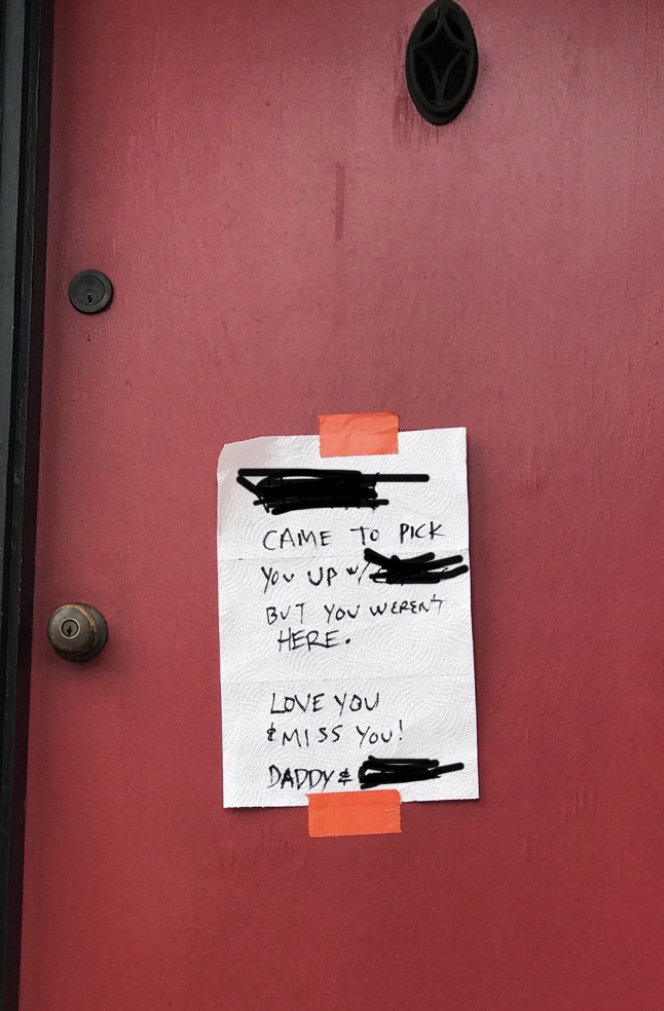 CAME TO PICK
YOU UP w/
BUT YOU WEREN'T
HERE.
LOVE YOU
& MISS YOU!
DADDY &